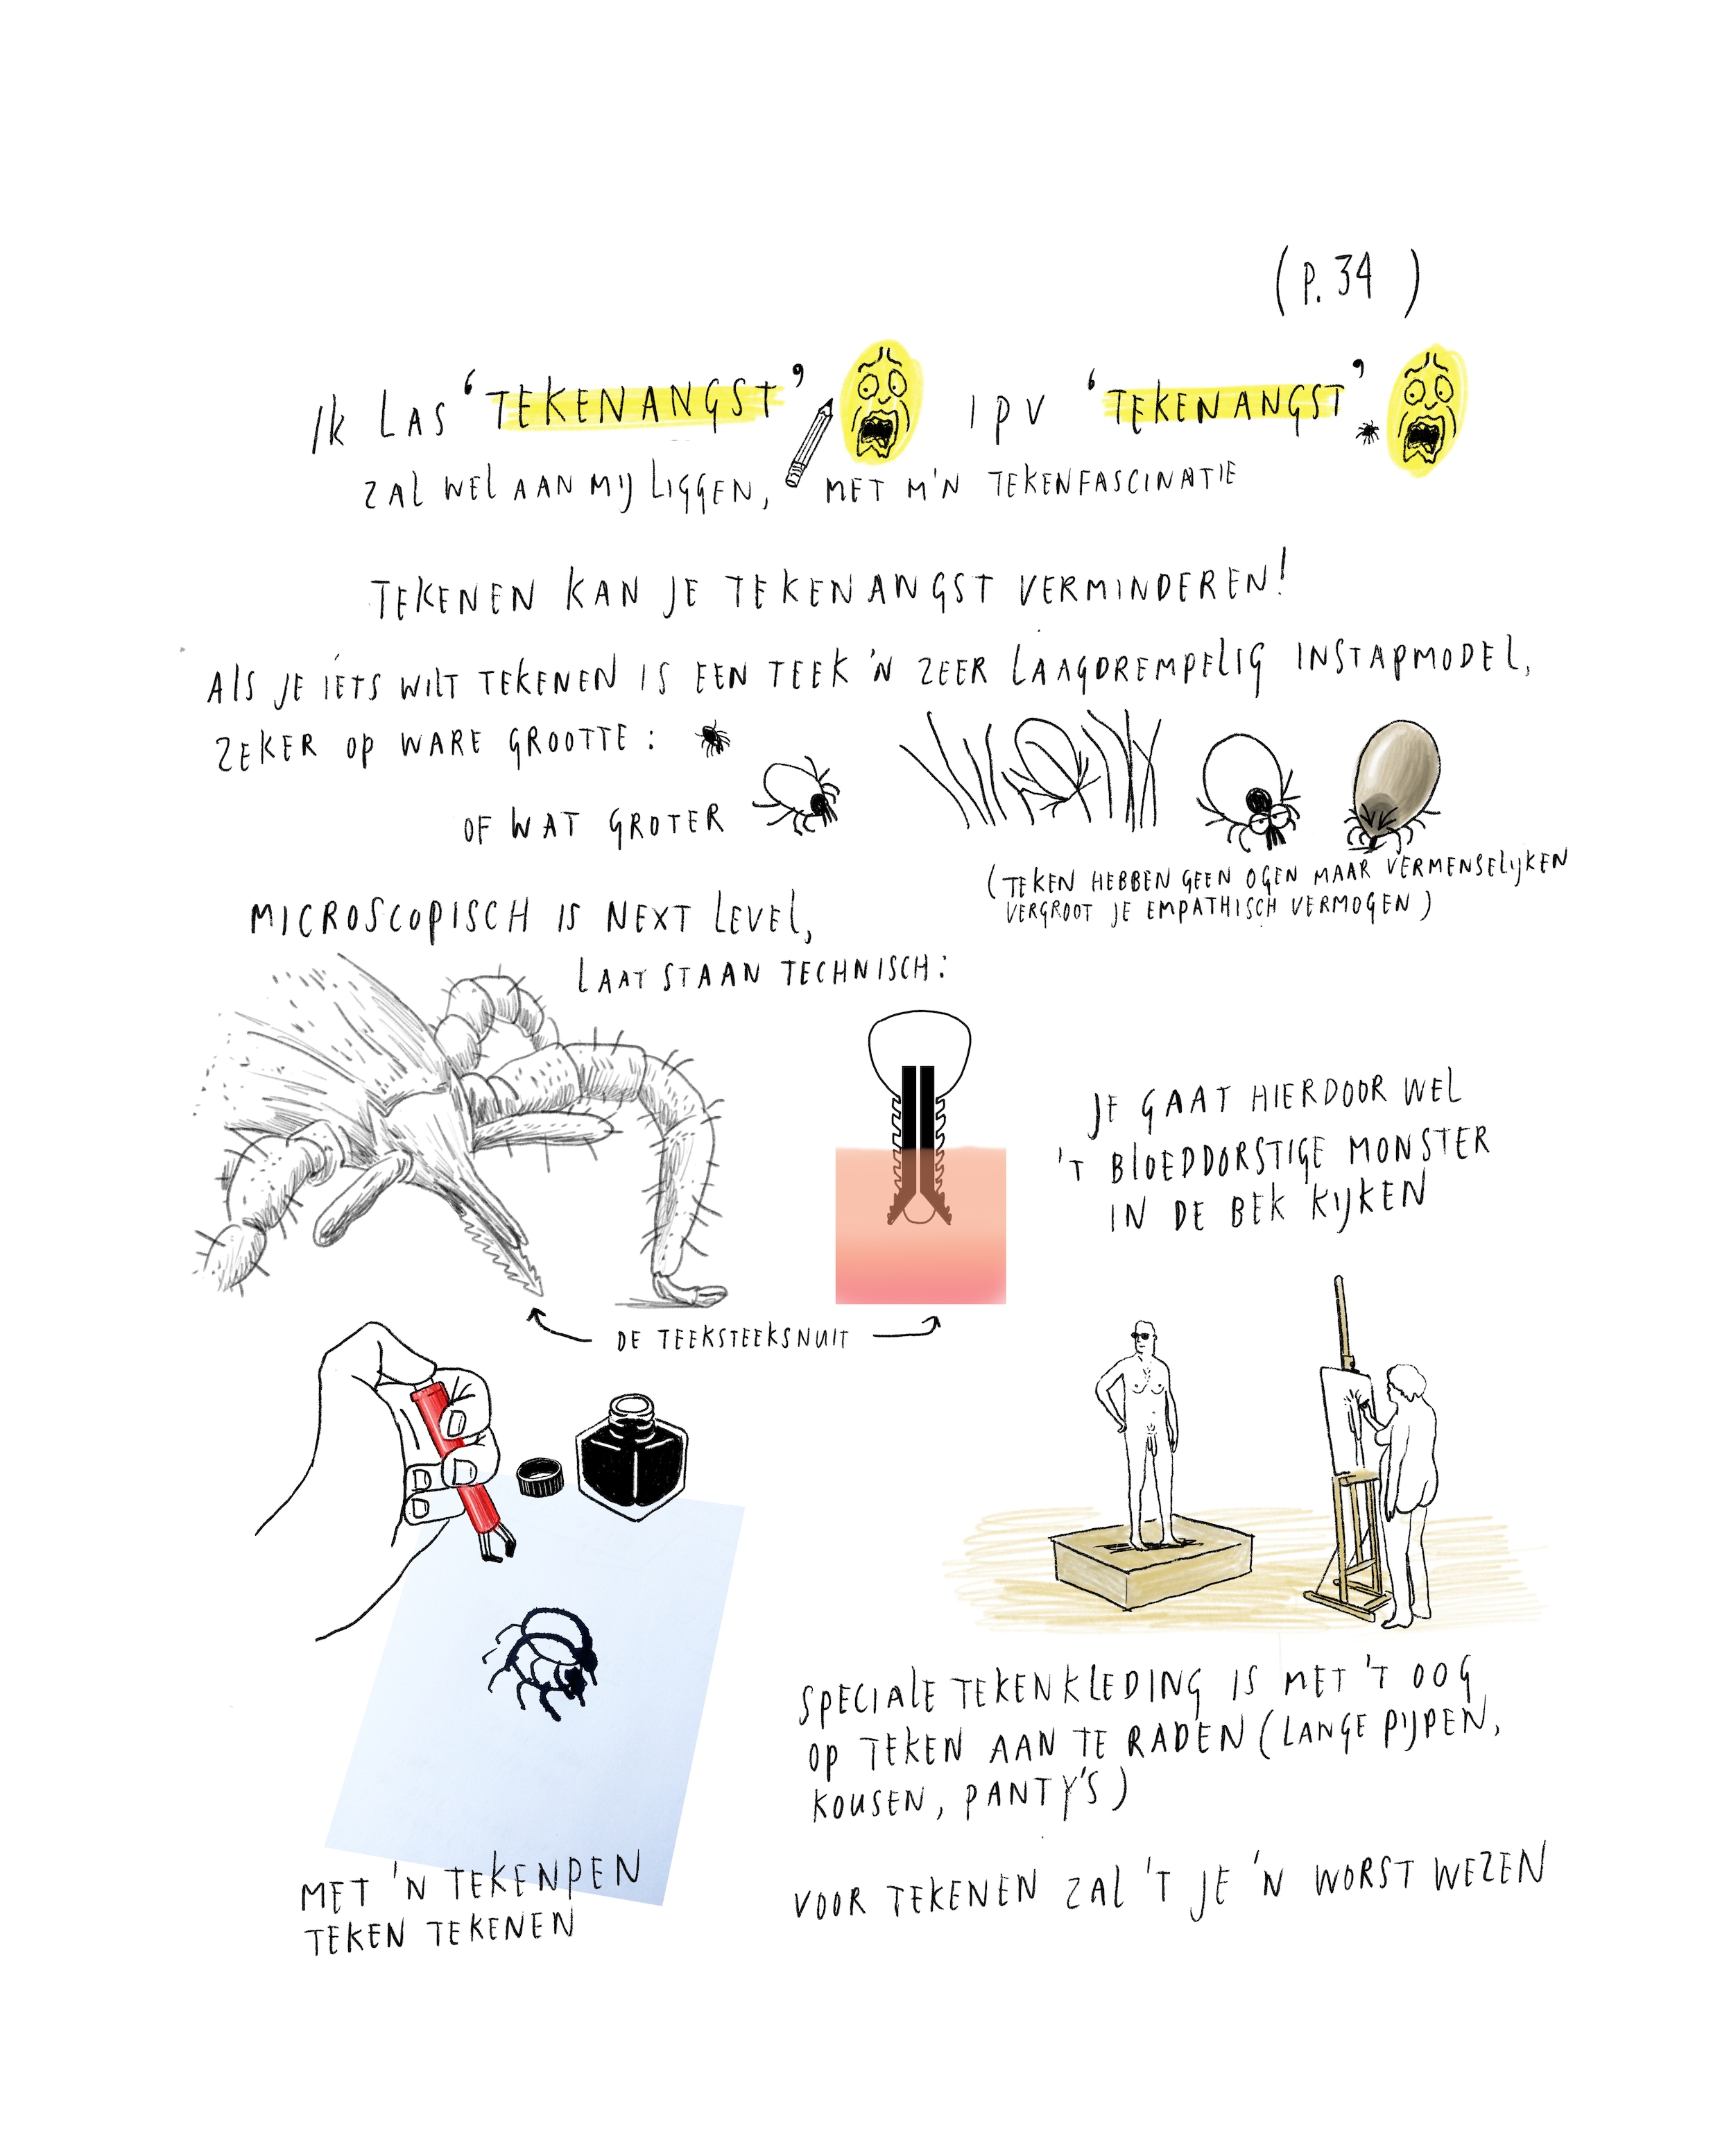 (P. 34)
Ik LAS 'TEKENANGST' IPV 'TEKENANGST'
ZAL WEL AAN MIJ LIGGEN, MET M'N TEKENFASCINATIE
TEKENEN KAN JE TEKENANGST VERMINDEREN!
ALS JE ÍETS WILT TEKENEN IS EEN TEEK 'N ZEER LAAGDREMPELIG INSTAPMODEL,
ZEKER OP WARE GROOTTE:
OF WAT GROTER
(TEKEN HEBBEN GEEN OGEN MAAR VERMENSELIJKEN
VERGROOT JE EMPATHISCH VERMOGEN)
MICROSCOPISCH IS NEXT LEVEL,
LAAT STAAN TECHNISCH:
JE GAAT HIERDOOR WEL
'T BLOEDDORSTIGE MONSTER
IN DE BEK KIJKEN
DE TEEKSTEEKSNUIT
SPECIALE TEKENKLEDING IS MET 'T OOG
OP TEKEN AAN TE RADEN (LANGE PIJPEN,
KOUSEN, PANTY'S)
MET 'N TEKENPEN
TEKEN TEKENEN
VOOR TEKENEN ZAL 'T JE 'N WORST WEZEN